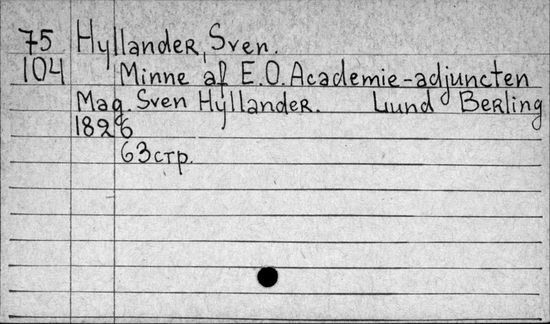 75 Hyllander, Sven.
104 Minne af E.O. Academie-adjuncten
Mag. Sven Hyllander. Lund Berling
1826
63стр.